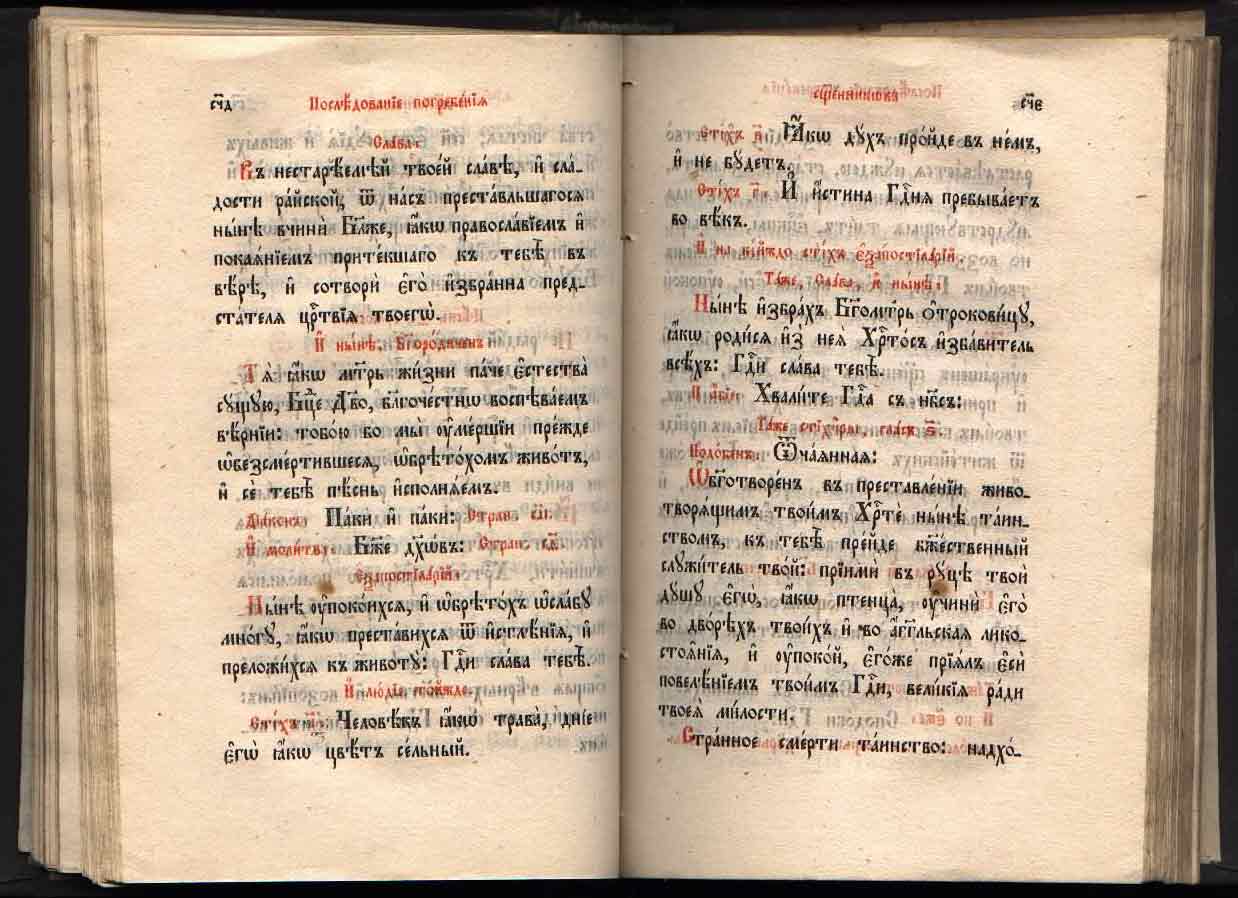 сч҃д
Послѣ́дованїе погребе́нїя
Сла́ва:
Въ нестарѣ́емѣй твое́й сла́вѣ, и҆ сла́-
дости ра́йской, ѿ на́съ преста́вльшагося
ны́нѣ вчинѝ Бл҃же, ꙗ҆́кѡ правосла́вїемъ и҆
покая́нїемъ прите́кшаго къ тебѣ̀ въ
вѣ́рѣ, и҆ сотворѝ є҆го̀ и҆збра́нна пред-
ста́теля црⷭ҇твїя твоегѡ̀.
И҆ ны́нѣ, Бг҃оро́диченъ
Тѧ̀ ꙗ҆́кѡ мт҃рь жи́зни па́че є҆стества̀
су́щую, Бц҃е Дв҃о, бл҃гоче́стнѡ воспѣва́емъ
вѣ́рнїи: тобо́ю бо мы̀ ᲂу҆ме́ршїи пре́жде
ѡ҆безсме́ртившеся, ѡ҆брѣто́хомъ живо́тъ,
и҆ сѐ тебѣ̀ пѣ́снь и҆сполня́емъ.
Дїа́конъ Па́ки и҆ па́ки: Стран.
И҆ моли́тву: Бж҃е дх҃ѡ́въ: Стран.
Є҆ѯапостїла́рїй:
Ны́нѣ ᲂу҆поко́ихся, и҆ ѡ҆брѣто́хъ ѡ҆сла́бу
мно́гу, ꙗ҆́кѡ преста́вихся ѿ и҆стлѣ́нїя, и҆
преложи́хся къ животу̀: Гдⷭ҇и сла́ва тебѣ̀.
И҆ лю́дїе то́жде.
Стїхъ Человѣ́къ ꙗ҆́кѡ трава̀, днїе
є҆гѡ̀ ꙗ҆́кѡ цвѣ́тъ се́льный.
сщ҃е́нникѡвъ
сч҃е
Стїхъ в҃. Ꙗ҆́кѡ ду́хъ про́йде въ не́мъ,
и҆ не бу́детъ.
Стїхъ г҃. И҆ и҆́стина Гдⷭ҇ня пребыва́етъ
во вѣ́къ.
И҆ на ки́йждо стїхъ є҆ѯапостїла́рїй.
Та́же, Сла́ва, и҆ ны́нѣ:
Ны́нѣ и҆збра́хъ Бг҃ома́трь ѻ҆трокови́цу,
ꙗ҆́кѡ роди́ся и҆з̾ нея̀ Хрⷭ҇то́съ и҆зба́витель
всѣ́хъ: Гдⷭ҇и сла́ва тебѣ̀.
И҆ а҆́бїе: Хвали́те Гдⷭ҇а съ нб҃съ:
Та́же стїхи̑ры, гла́съ ѕ҃.
Подо́бенъ: Ѿча́янная:
Ѡ҆бг҃отворе́нъ въ преставле́нїи живо-
творя́щимъ твои́мъ Хрⷭ҇тѐ ны́нѣ та́ин-
ствомъ, къ тебѣ̀ пре́йде бж҃е́ственный
служи́тель тво́й: прїимѝ въ ру́цѣ твоѝ
ду́шу є҆гѡ̀, ꙗ҆́кѡ птенца̀, ᲂу҆чинѝ є҆го̀
во дво́рѣхъ твои́хъ и҆ во а҆́гг҃льская лико-
стоя̑нїя, и҆ ᲂу҆поко́й, є҆го́же прїя́лъ є҆сѝ
повелѣ́нїемъ твои́мъ Гдⷭ҇и, вели́кїя ра́ди
твоея̀ ми́лости.
Стра́нное сме́рти та́инство: надхо́-